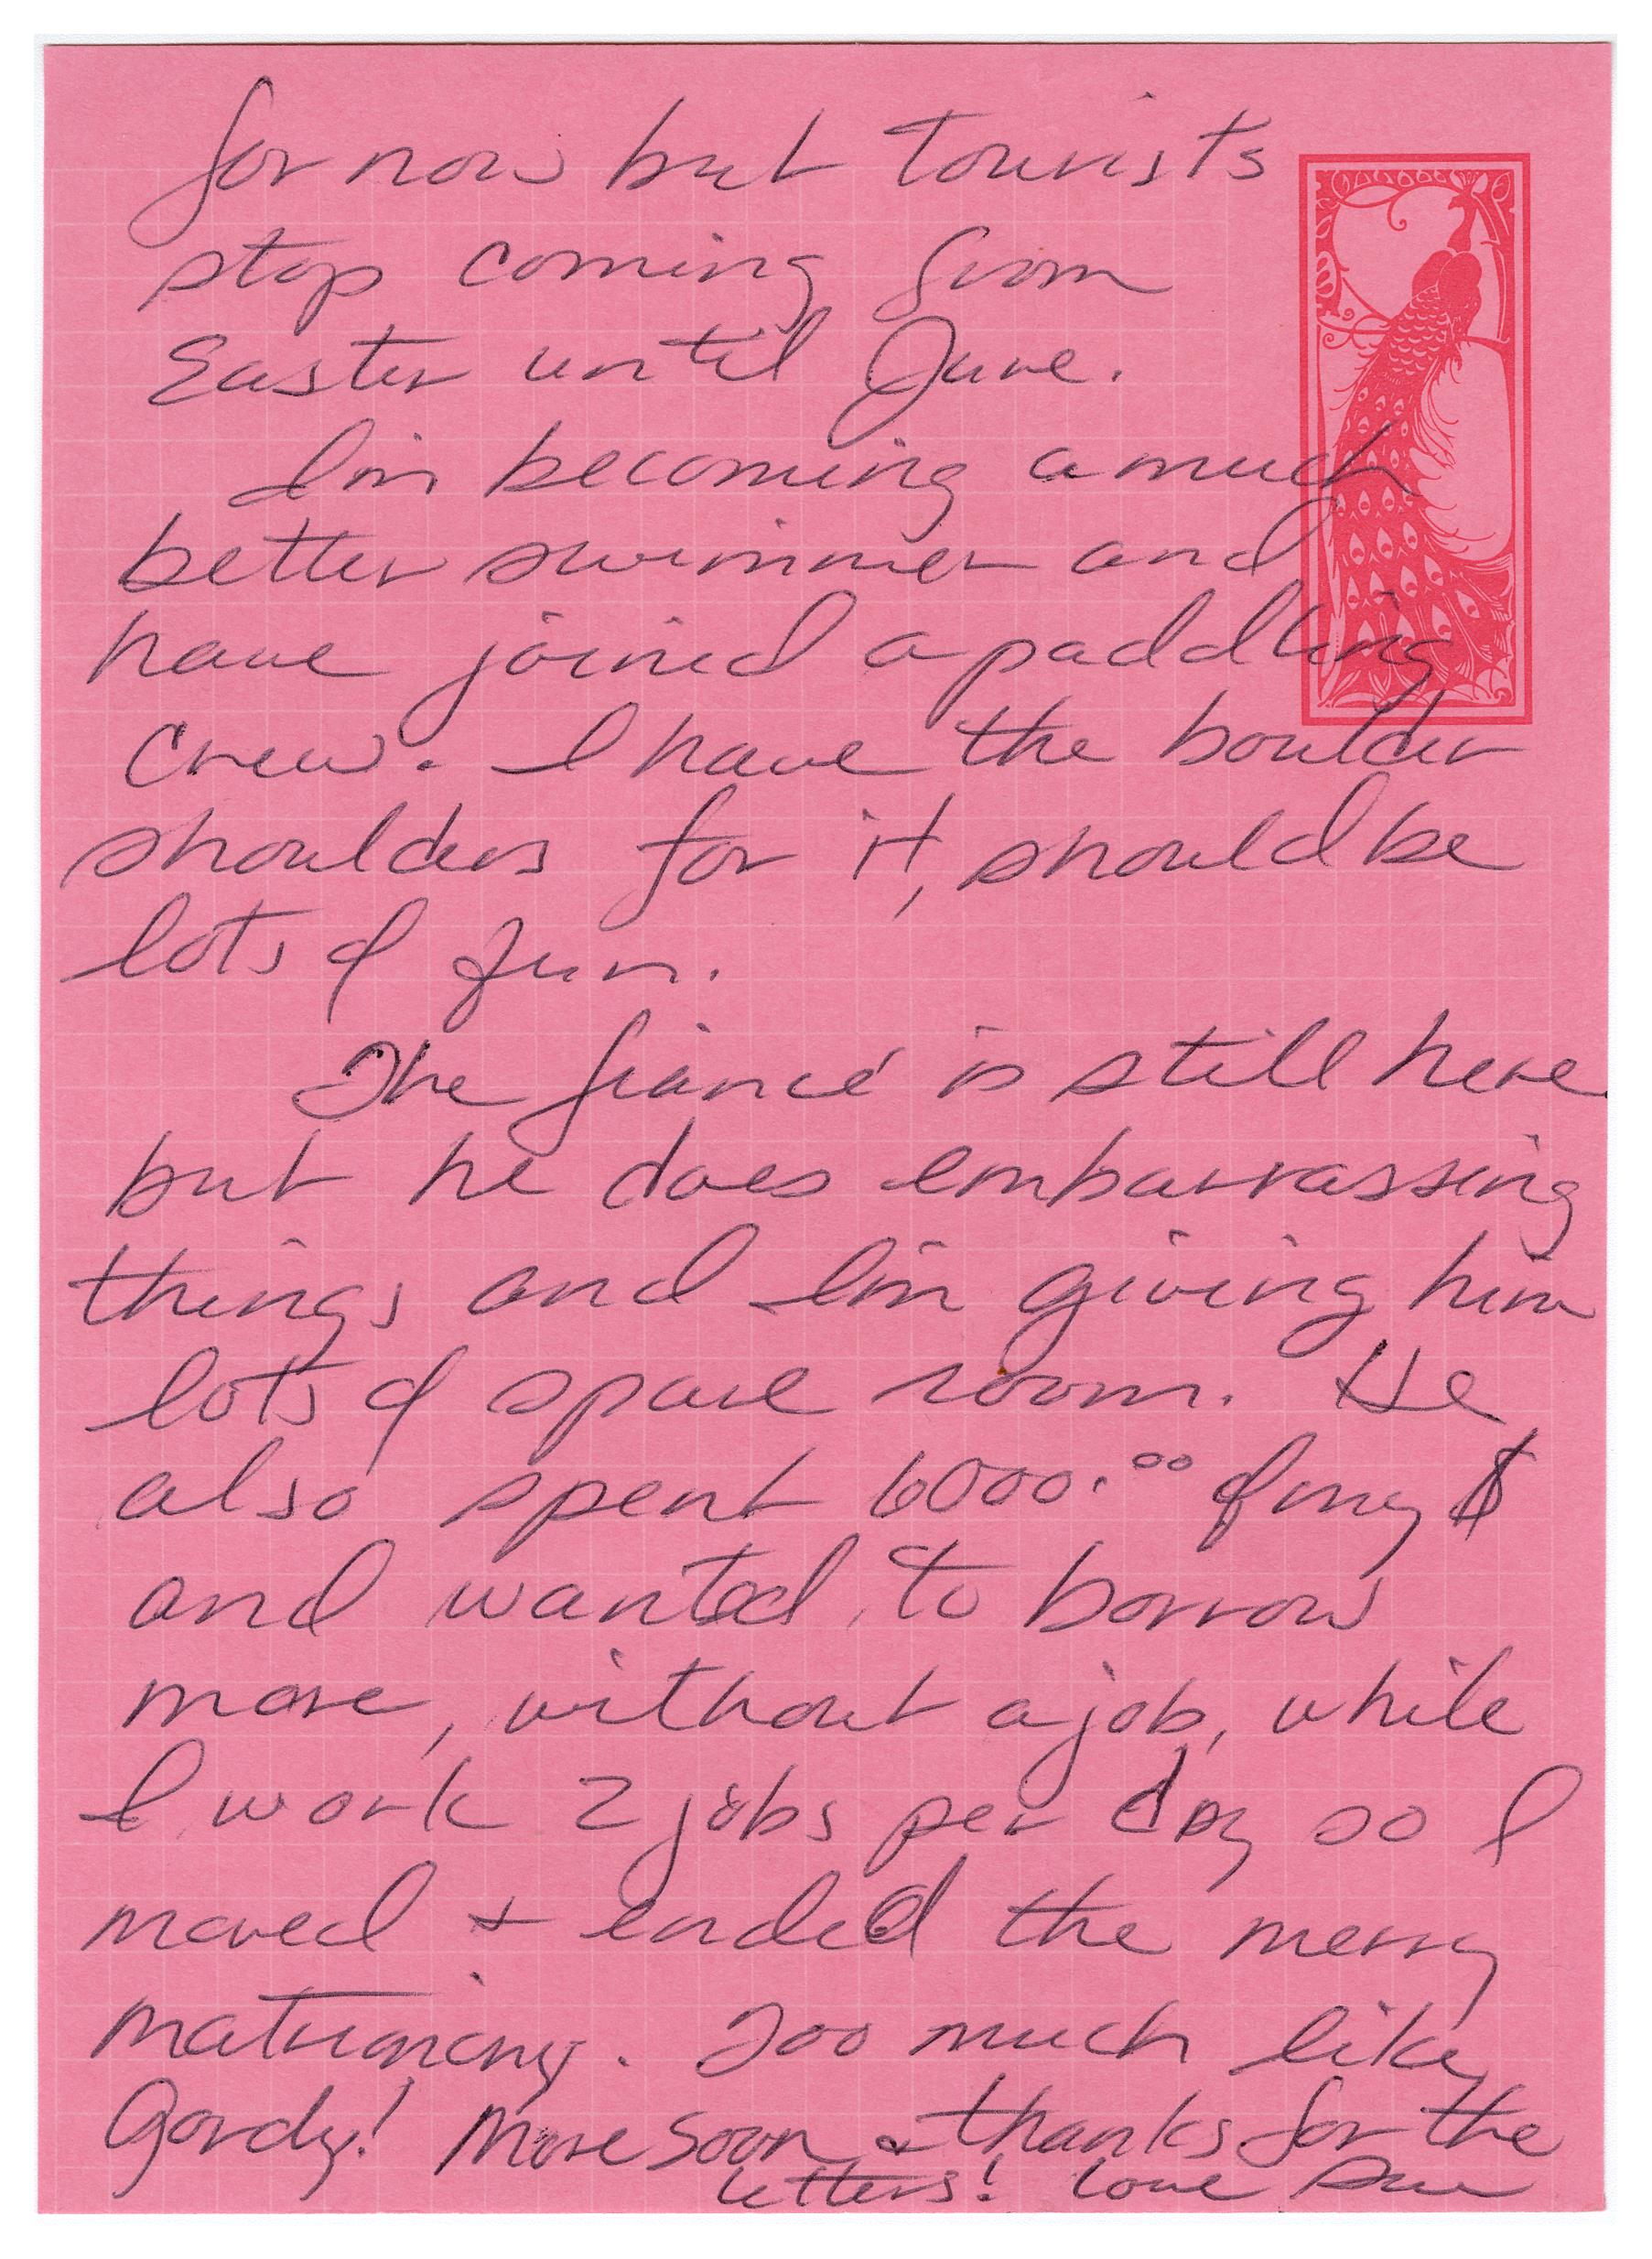 for now but tourists
stop coming from
Easter until June.
I'm becoming a much
better swimmer and
have joined a paddling
crew. I have the boulder
shoulders for it, should be
lots of fun.
The fiancé is still here
but he does embarrassing
things and I'm giving him
lots of spare room. He
also spent 6000.00 of my $
and wanted to borrow
more, without a job, while
I work 2 jobs per day so I
moved + ended the merry
matrimony. Too much like
Gordy! More soon & thanks for the
letters! Love Sue